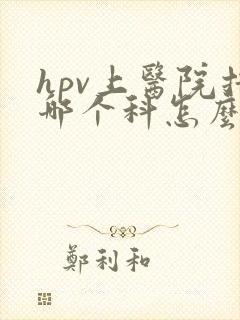 hpv上醫院掛
哪个科怎麼
鄭利和